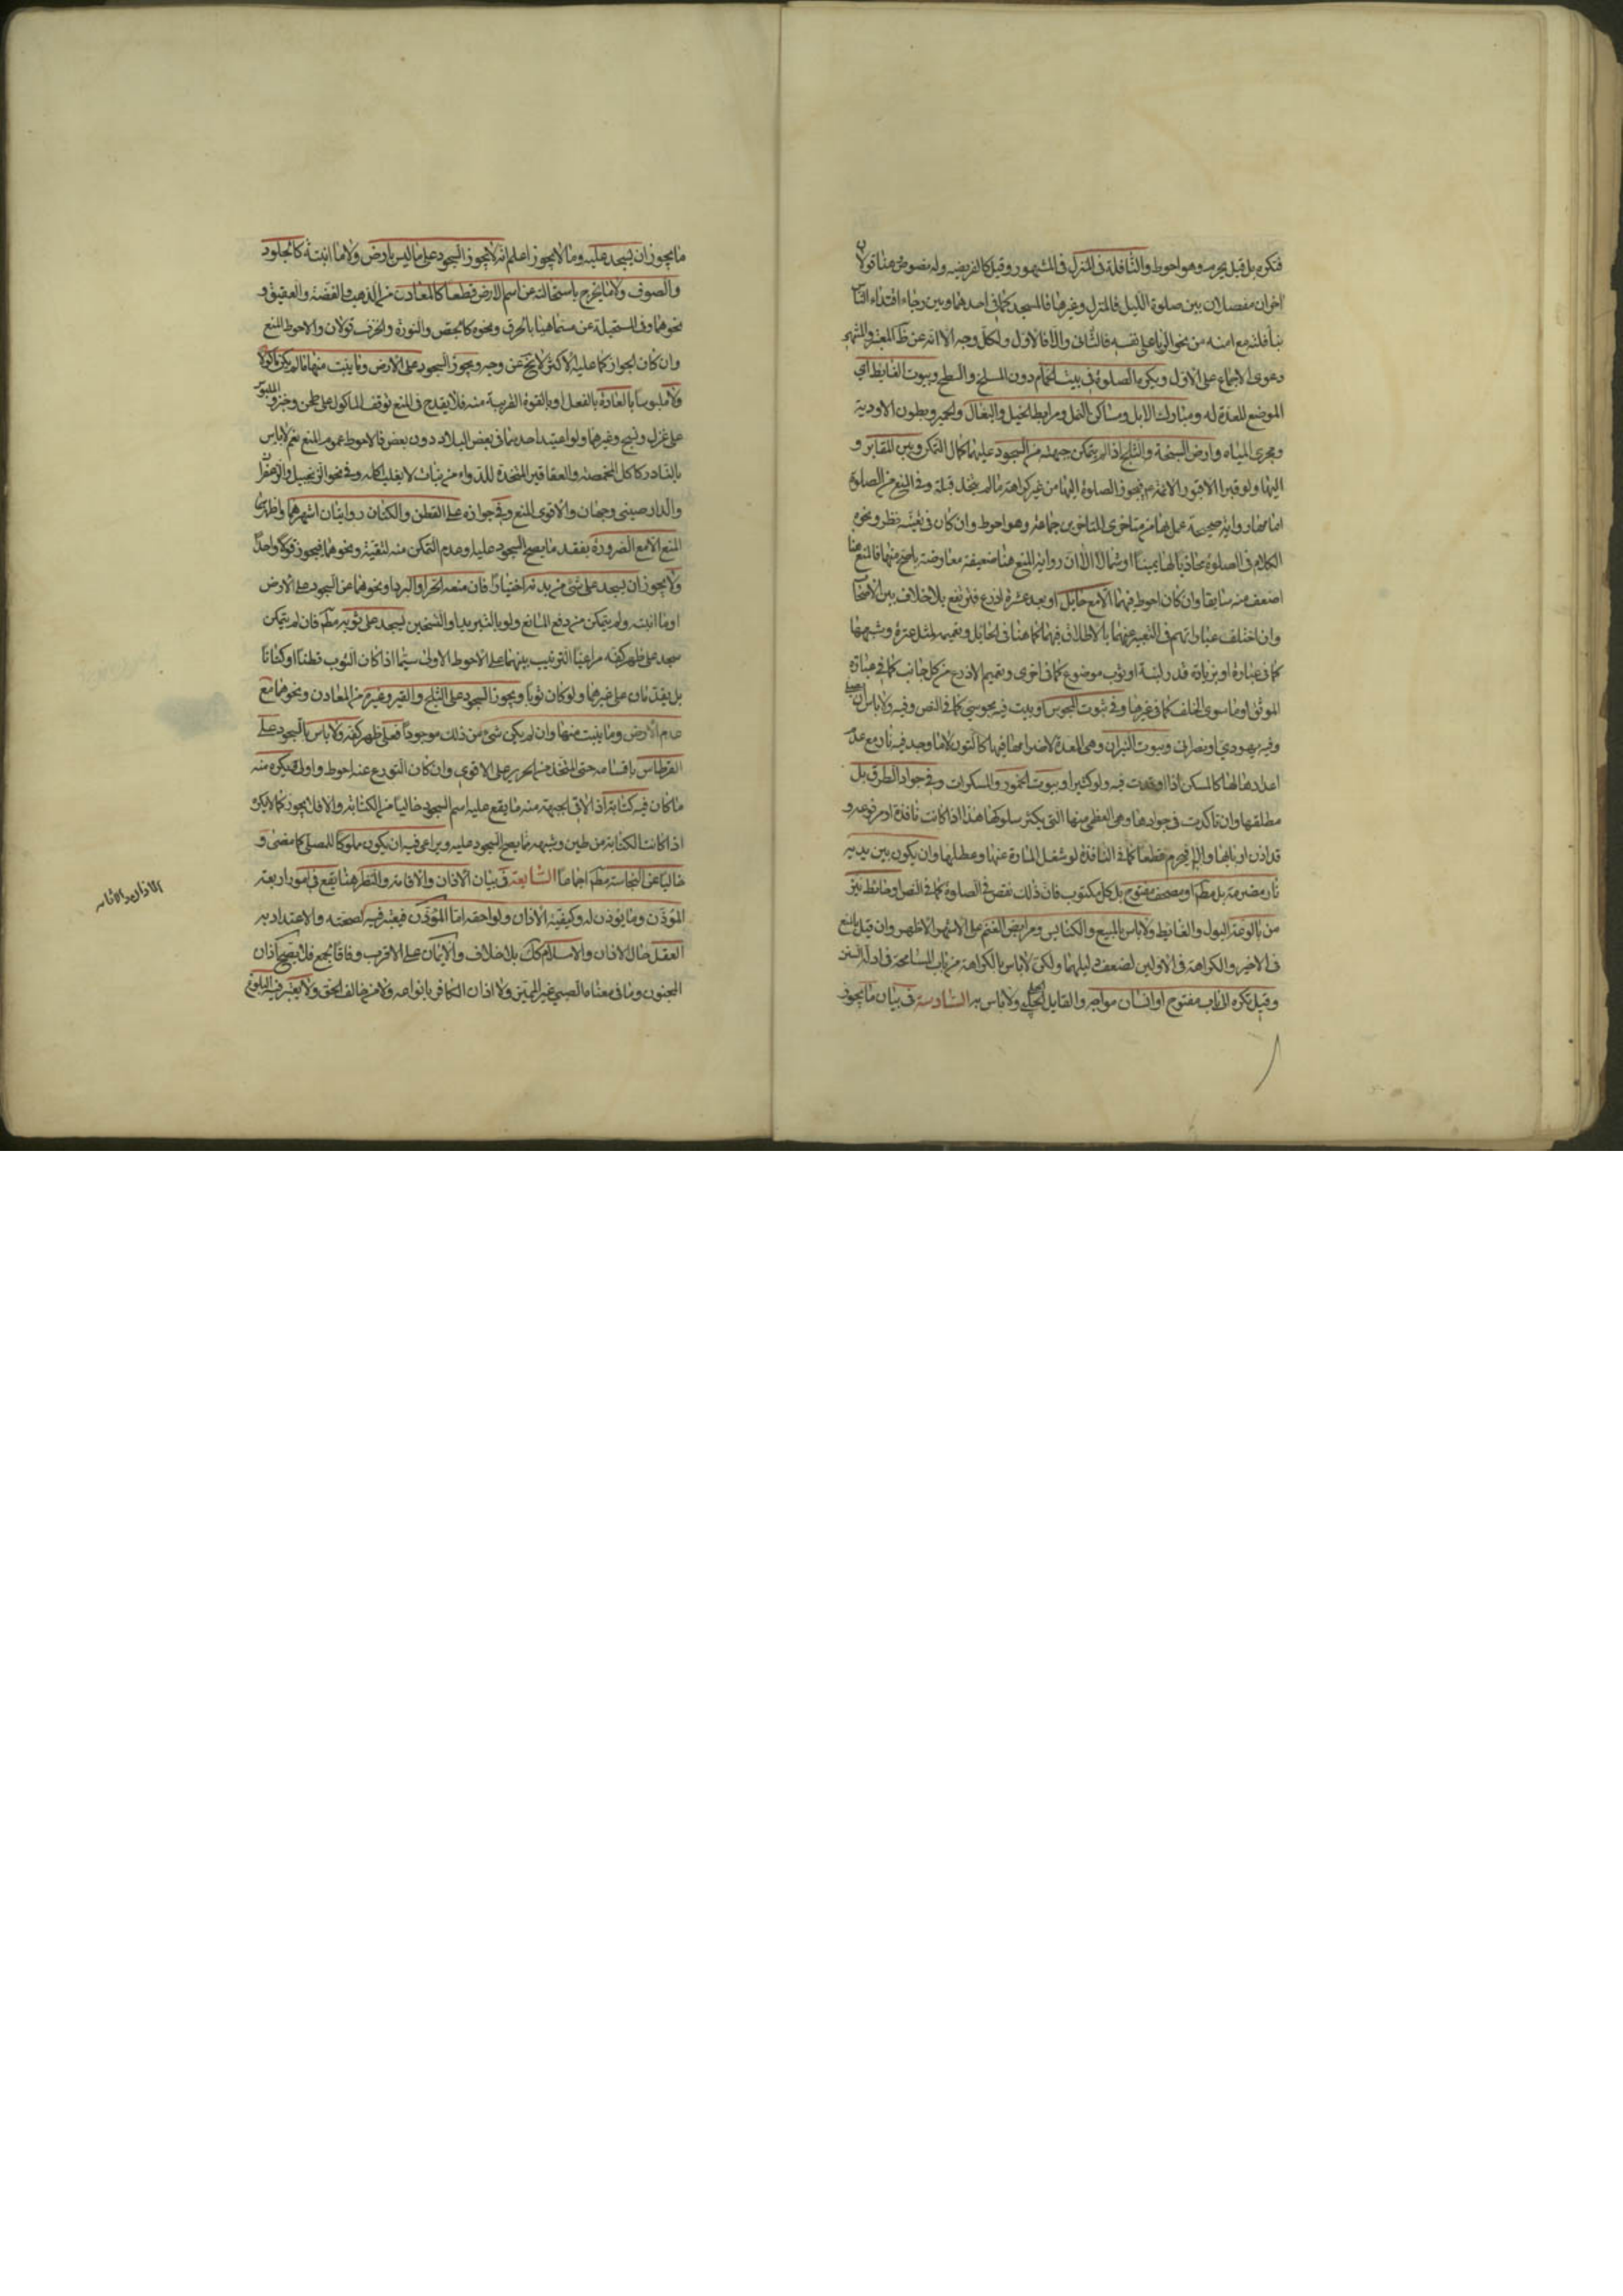 فتكره بل قيل يحرم وهو احوط والنافلة في المنزل في المشهور وقيل كالفريضة وله نصوص وهنا قولان
اخران مفصلان بين صلوة الليل فالمنزل وغيرها فالمسجد كما في احدهما وبين رجاء اقتداء الناس
بنافلته مع امنه من نحو الريا على نفسه فالثاني والا فالاول ولكل وجه الا انه عن ظ المعتبر والمنتهى
دعوى الاجماع على الاول ويكره الصلوة في بيت الحمام دون المسلخ والسطح وبيوت الغايط اي
الموضع المعدة له ومبارك الابل ومساكن النمل ومرابط الخيل والبغال والحمير وبطون الاودية
ومجرى المياه وارض السبخة والثلج اذا لم يتمكن جبهته من السجود عليهما كمال التمكن وبين المقابر و
اليها ولو قبرا الا قبور الائمة عم فيجوز الصلوة اليها من غير كراهة ما لم يتخذ قبلة وفي المنع من الصلوة
امامها رواية صحيحة عمل بها من متاخري المتاخرين جماعة وهو احوط وان كان في تعينه نظر ونحوه
الكلام في الصلوة محاذيا لها يمينا او شمالا الا ان رواية المنع هنا ضعيفة معارضة باصح منها فالمنع هنا
اضعف منه سابقا وان كان احوط فيهما الا مع حايل او بعد عشرة اذرع فترتفع بلا خلاف بين الاصحاب
وان اختلف عباراتهم في التعبير عنهما بالاطلاق فيهما كما هنا في الحايل وتعميمه لمثل عنزة وشبهها
كما في عبارة او بزيادة قدر لبنة او ثوب موضوع كما في اخرى وتعميم الاذرع من كل جانب كما في عبارة
الموثق او ما سوى الخلف كما في غيرها وفي بيوت المجوس او بيت فيه مجوسي كما في النص وفيه ولا باس ان يصلي
وفيه يهودي او نصراني وبيوت النيران وهي المعدة لاضرامها فيها كالتون لا ما وجد فيه نار مع عدم
اعدادها لها كالمسكن اذا اوقدت فيه ولو كثيرا وبيوت الخمور والمسكرات وفي جواد الطرق بل
مطلقها وان تاكدت في جوادها وهي العظمى منها التي يكثر سلوكها هذا اذا كانت نافذة او مرفوعة و
قد اذن اربابها والا فيحرم قطعا كما في النافذة لو شغل المارة عنها وعطلها وان يكون بين يديه
نار مضرمة بل مطم او مصحف مفتوح بل كل مكتوب فان ذلك نقص في الصلوة كما في النص او حائط ينز
من بالوعة البول والغائط ولا باس بالبيع والكنايس ومرابض الغنم على الاشهر الاظهر وان قيل بالمنع
في الاخير والكراهة في الاولين لضعف دليلهما ولكن لا باس بالكراهة من باب المسامحة في ادلة السنن
وقيل تكره الى باب مفتوح او انسان مواجه والقايل الحلبي ولا باس به السادسة في بيان ما يجوز
ما يجوز ان يسجد عليه وما لا يجوز اعلم انه لا يجوز السجود على ما ليس بارض ولا ما انبتته كالجلود
والصوف ولا ما يخرج باستحالته عن اسم الارض قطعا كالمعادن من الذهب والفضة والعقيق و
نحوهما وفي المستحيلة عن مسماهيا بالحرق ونحوه كالجص والنورة والخزف قولان والاحوط المنع
وان كان الجواز كما عليه الاكثر لا يخ عن وجه ويجوز السجود على الارض وما ينبت منها ما لم يكن ماكولا
ولا ملبوسا بالعادة بالفعل او بالقوة القريبة منه فلا يقدح في المنع توقف الماكول على طحن وخبز والملبوس
على غزل ونسج وغيرهما ولو اعتيد احدهما في بعض البلاد دون بعض فالاحوط عموم المنع نعم لا باس
بالنادر كاكل المخمصة والعقاقير المتخذة للدواء من نبات لا يغلب اكله وفي نحو الزنجبيل والزعفران
والدارصيني وجهان والاقوى المنع وفي جوازه على القطن والكتان روايتان اشهرهما واظهرهما
المنع الا مع الضرورة بفقد ما يصح السجود عليه وعدم التمكن منه لتقية ونحوهما فيجوز قولا واحدا
ولا يجوز ان يسجد على شيء من بدنه اختيارا فان منعه الحر او البرد او نحوهما عن السجود على الارض
او ما انبته ولم يتمكن من دفع المانع ولو بالتبريد او التسخين يسجد على ثوبه مطم فان لم يتمكن
سجد على ظهر كفه مراعيا الترتيب بينهما على الاحوط الاولى سيما اذا كان الثوب قطنا او كتانا
بل يقدمان على غيرهما ولو كان ثوبا ويجوز السجود على الثلج والقير وغيره من المعادن ونحوهما مع
عدم الارض وما ينبت منها وان لم يكن شيء من ذلك موجودا فعلى ظهر كفه ولا باس بالسجود على
القرطاس باقسامه حتى المتخذ من الحرير على الاقوى وان كان التورع عنه احوط واولى ويكره منه
ما كان فيه كتابة اذ لاقى الجبهة منه ما يقع عليه اسم السجود خاليا من الكتابة والا فلا يجوز كما لا يكره
اذا كانت الكتابة من طين وشبهه مما يصح السجود عليه ويراعى فيه ان يكون مملوكا للمصلي كما مضى و
خاليا عن النجاسة مطم اجماعا السابعة في بيان الاذان والاقامة والنظر هنا يقع في امور اربعة
المؤذن وما يؤذن له وكيفية الاذان ولواحقه اما المؤذن فيعتبر فيه لصحته والاعتداد به
العقل حال الاذان والاسلام كك بلا خلاف والايمان على الاقرب وفاقا لجمع فلا يصح اذان
المجنون وما في معناه الصبي غير المميز ولا اذان الكافر بانواعه ولا من خالف الحق ولا يعتبر فيه البلوغ
الاذان والاقامه